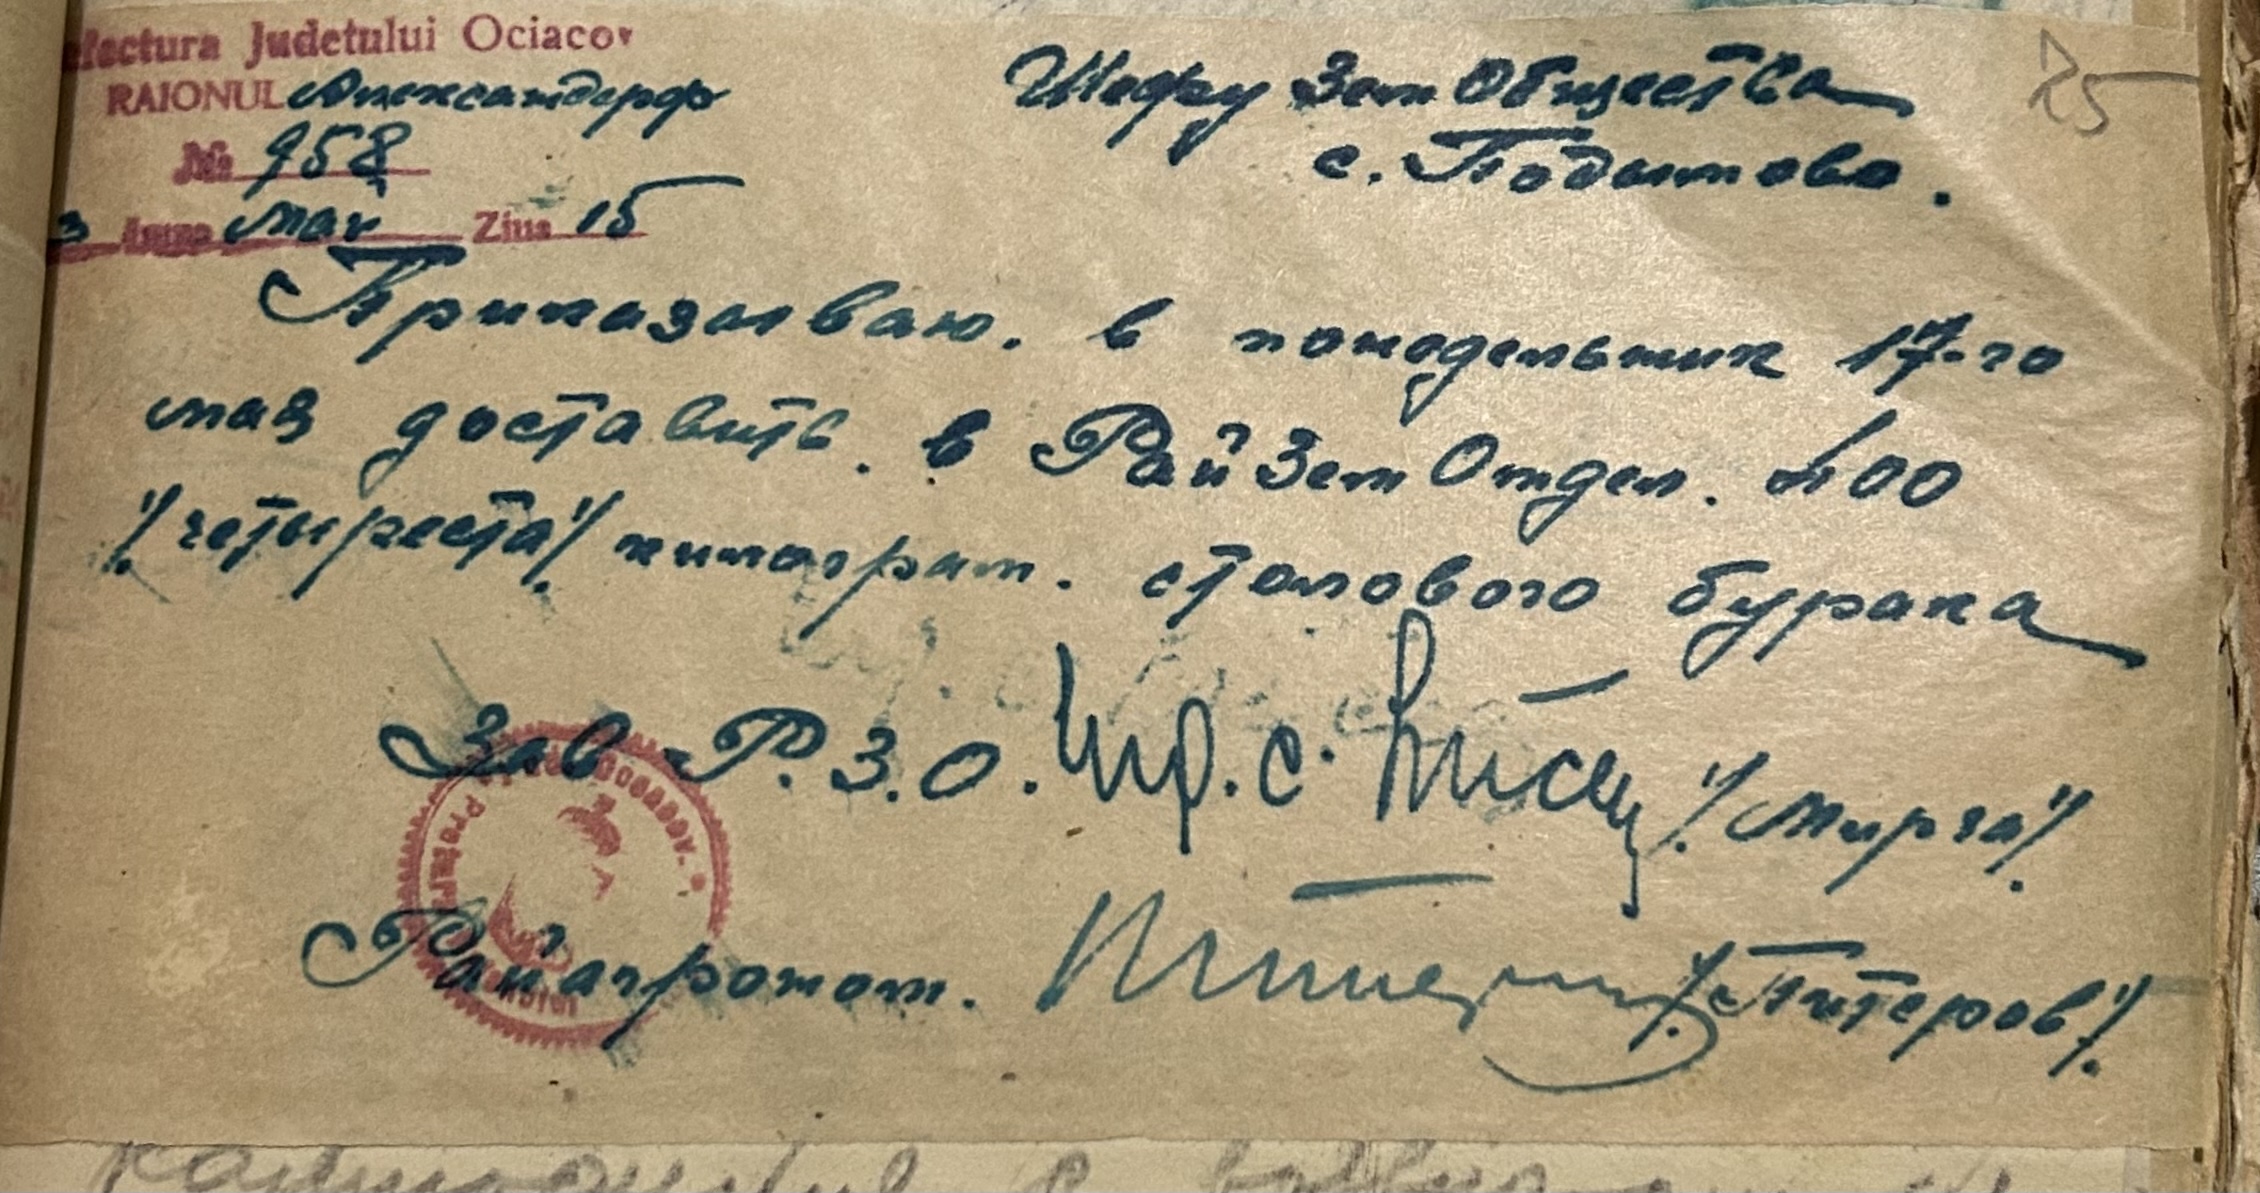 efectura Judetului Ociacov
RAIONUL Александерф
№ 958
3 Luna мая Ziua 15
Шефу Зем Общества
с. Подымово.
25
Приказываю. в понедельник 17-го
мая доставить. в РайЗемОтдел. 400
/четыреста/ килограм. столового бурака
Зав - Р.З.О. /Мирча/
Райагроном. /Питеров/